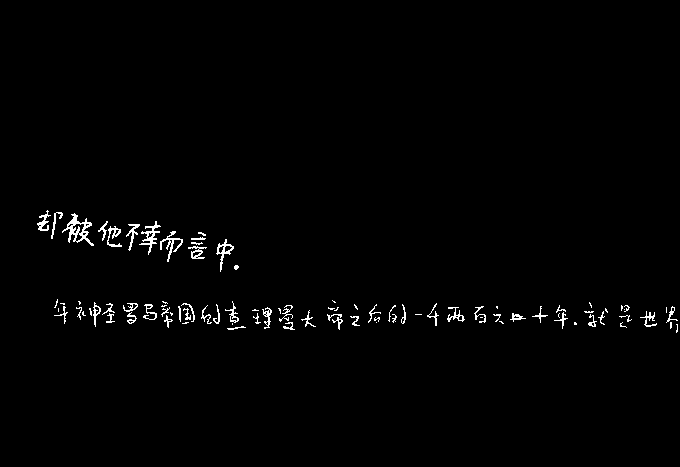 却被他不幸而言中.
年神圣罗马帝国的查理曼大帝之后的一千两百六四十年.就是世界